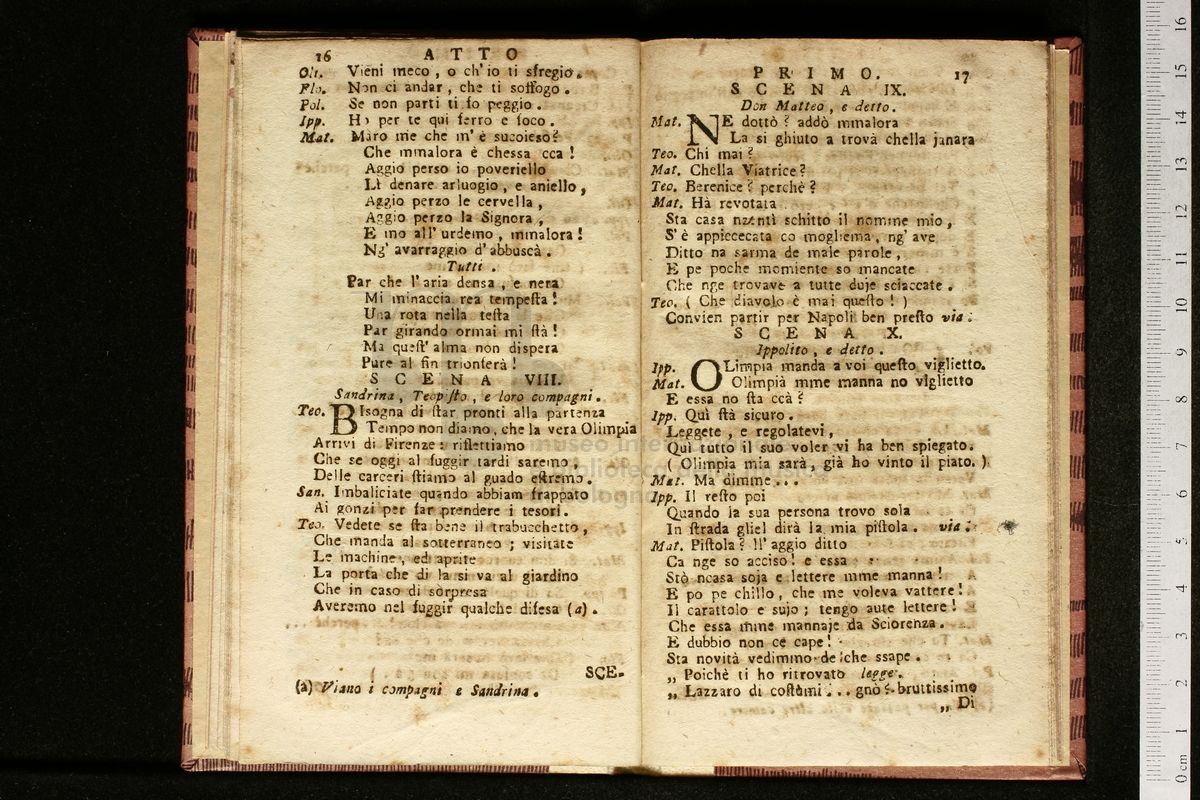 16 ATTO
Olt. Vieni meco, o ch'io ti sfregio.
Flo. Non ci andar, che ti soffogo.
Pol. Se non parti ti fo peggio.
Ipp. Ho per te qui ferro e foco.
Mat. Maro me che m'è sucoieso?
Che mmalora è chessa cca!
Aggio perso io poveriello
Lì denare arluogio, e aniello,
Aggio perzo le cervella,
Aggio perzo la Signora,
E mo all'urdemo, mmalora!
Ng' avarraggio d'abbuscà.
Tutti.
Par che l'aria densa, e nera
Mi minaccia rea tempesta!
Una rota nella testa
Par girando ormai mi stà!
Ma quest'alma non dispera
Pure al fin trionferà!
SCENA VIII.
Sandrina, Teopisto, e loro compagni.
Teo. BIsogna di star pronti alla partenza
Tempo non diamo, che la vera Olimpia
Arrivi di Firenze: riflettiamo
Che se oggi al fuggir tardi saremo,
Delle carceri stiamo al guado estremo.
San. Imbaliciate quando abbiam frappato
Ai gonzi per far prendere i tesori.
Teo. Vedete se sta bene il trabucchetto,
Che manda al sotterraneo; visitate
Le machine, ed aprite
La porta che di la si va al giardino
Che in caso di sorpresa
Averemo nel fuggir qualche difesa (a).
SCE-
(a) Viano i compagni e Sandrina.
PRIMO. 17
SCENA IX.
Don Matteo, e detto.
Mat. NE dottò? addò mmalora
La si ghiuto a trovà chella janara
Teo. Chi mai?
Mat. Chella Viatrice?
Teo. Berenice? perchè?
Mat. Hà revotata
Sta casa nzentì schitto il nomme mio,
S'è appiccecata co mogliema, ng' ave
Ditto na sarma de male parole,
E pe poche momiente so mancate
Che nge trovave a tutte duje sciaccate.
Teo. (Che diavolo è mai questo!)
Convien partir per Napoli ben presto via.
SCENA X.
Ippolito, e detto.
Ipp. OLimpia manda a voi questo viglietto.
Mat. Olimpià mme manna no viglietto
E essa no sta ccà?
Ipp. Quì stà sicuro.
Leggete, e regolatevi,
Quì tutto il suo voler vi ha ben spiegato.
(Olimpia mia sarà, già ho vinto il piato.)
Mat. Ma dimme...
Ipp. Il resto poi
Quando la sua persona trovo sola
In strada gliel dirà la mia pistola. via.
Mat. Pistola? ll'aggio ditto
Ca nge so acciso! e essa
Stò ncasa soja e lettere mme manna!
E po pe chillo, che me voleva vattere!
Il carattolo e sujo; tengo aute lettere!
Che essa mme mannaje da Sciorenza.
E dubbio non ce cape!
Sta novità vedimmo de che ssape.
„ Poichè ti ho ritrovato legge.
„ Lazzaro di costumi... gnò? bruttissimo
„ Di